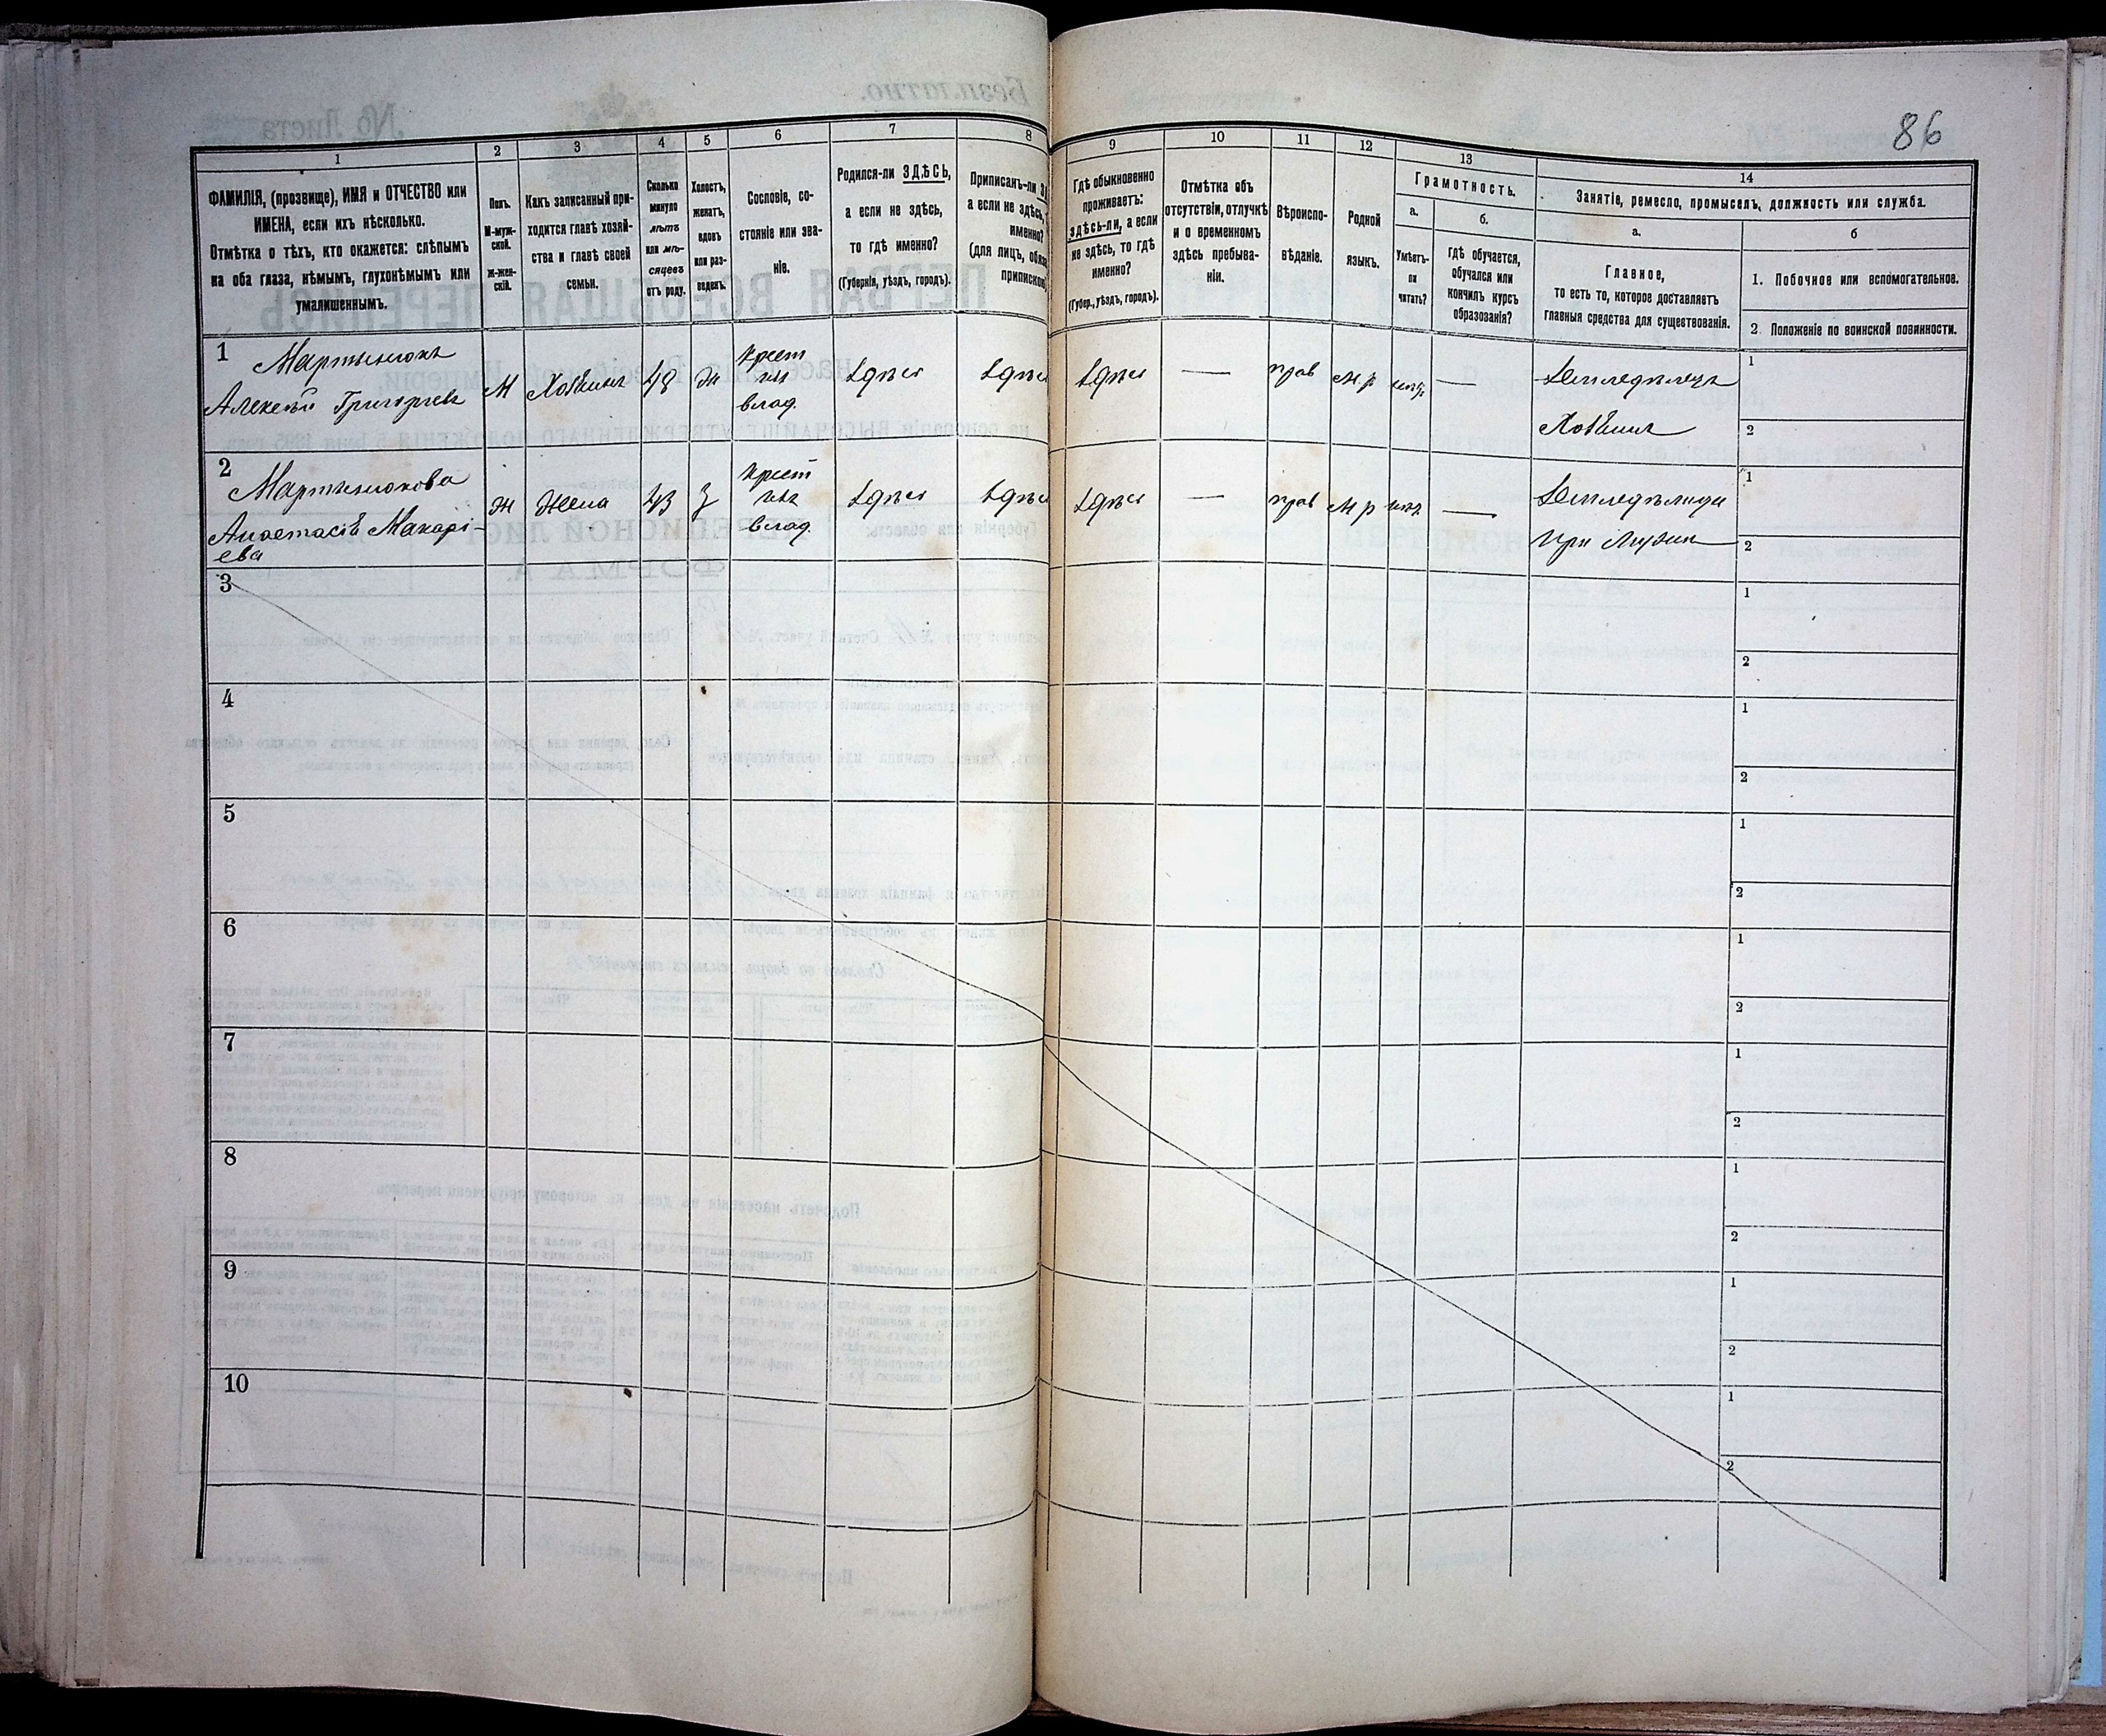 86
1
2
3
4
5
6
7
8
9
10
11
12
13
14
ФАМИЛІЯ, (прозвище), ИМЯ и ОТЧЕСТВО или
ИМЕНА, если ихъ нѣсколько.
Отмѣтка о тѣхъ, кто окажется: слѣпымъ
на оба глаза, нѣмымъ, глухонѣмымъ или
умалишеннымъ.
Полъ.
М-муж-
ской.
Ж-жен-
скій.
Какъ записанный при-
ходится главѣ хозяй-
ства и главѣ своей
семьи.
Сколько
минуло
лѣтъ
или мѣ-
сяцевъ
отъ роду.
Холостъ,
женатъ,
вдовъ
или раз-
веденъ.
Сословіе, со-
стояніе или зва-
ніе.
Родился-ли ЗДѢСЬ,
а если не здѣсь,
то гдѣ именно?
(Губернія, уѣздъ, городъ).
Приписанъ-ли
а если не здѣсь,
именно?
(для лицъ,
Гдѣ обыкновенно
проживаетъ:
здѣсь-ли, а если
не здѣсь, то гдѣ
именно?
(Губер., уѣздъ, городъ).
Отмѣтка объ
отсутствіи, отлучкѣ
и о временномъ
здѣсь пребыва-
ніи.
Вѣроиспо-
вѣданіе.
Родной
языкъ.
Грамотность.
а.
Умѣетъ-
ли
читать?
б.
Гдѣ обучается,
обучался или
кончилъ курсъ
образованія?
Занятіе, ремесло, промыселъ, должность или служба.
а.
Главное,
то есть то, которое доставляетъ
главныя средства для существованія.
б
1. Побочное или вспомогательное.
2. Положеніе по воинской повинности.
1
Мартынюкъ
Алексѣй Григорьевъ
М
Хозяинъ
48
ж
крест
влад.
Здѣсь
Здѣсь
Здѣсь
—
прав
м.р
—
Земледѣлецъ
Хозяинъ
1
2
2
Мартынюкова
Анастасія Макарі-
ева
ж
Жена
43
З
крест
влад.
Здѣсь
Здѣсь
Здѣсь
—
прав
м р
—
при мужѣ
1
2
3
1
2
4
1
2
5
1
2
6
1
2
7
1
2
8
1
2
9
1
2
10
1
2